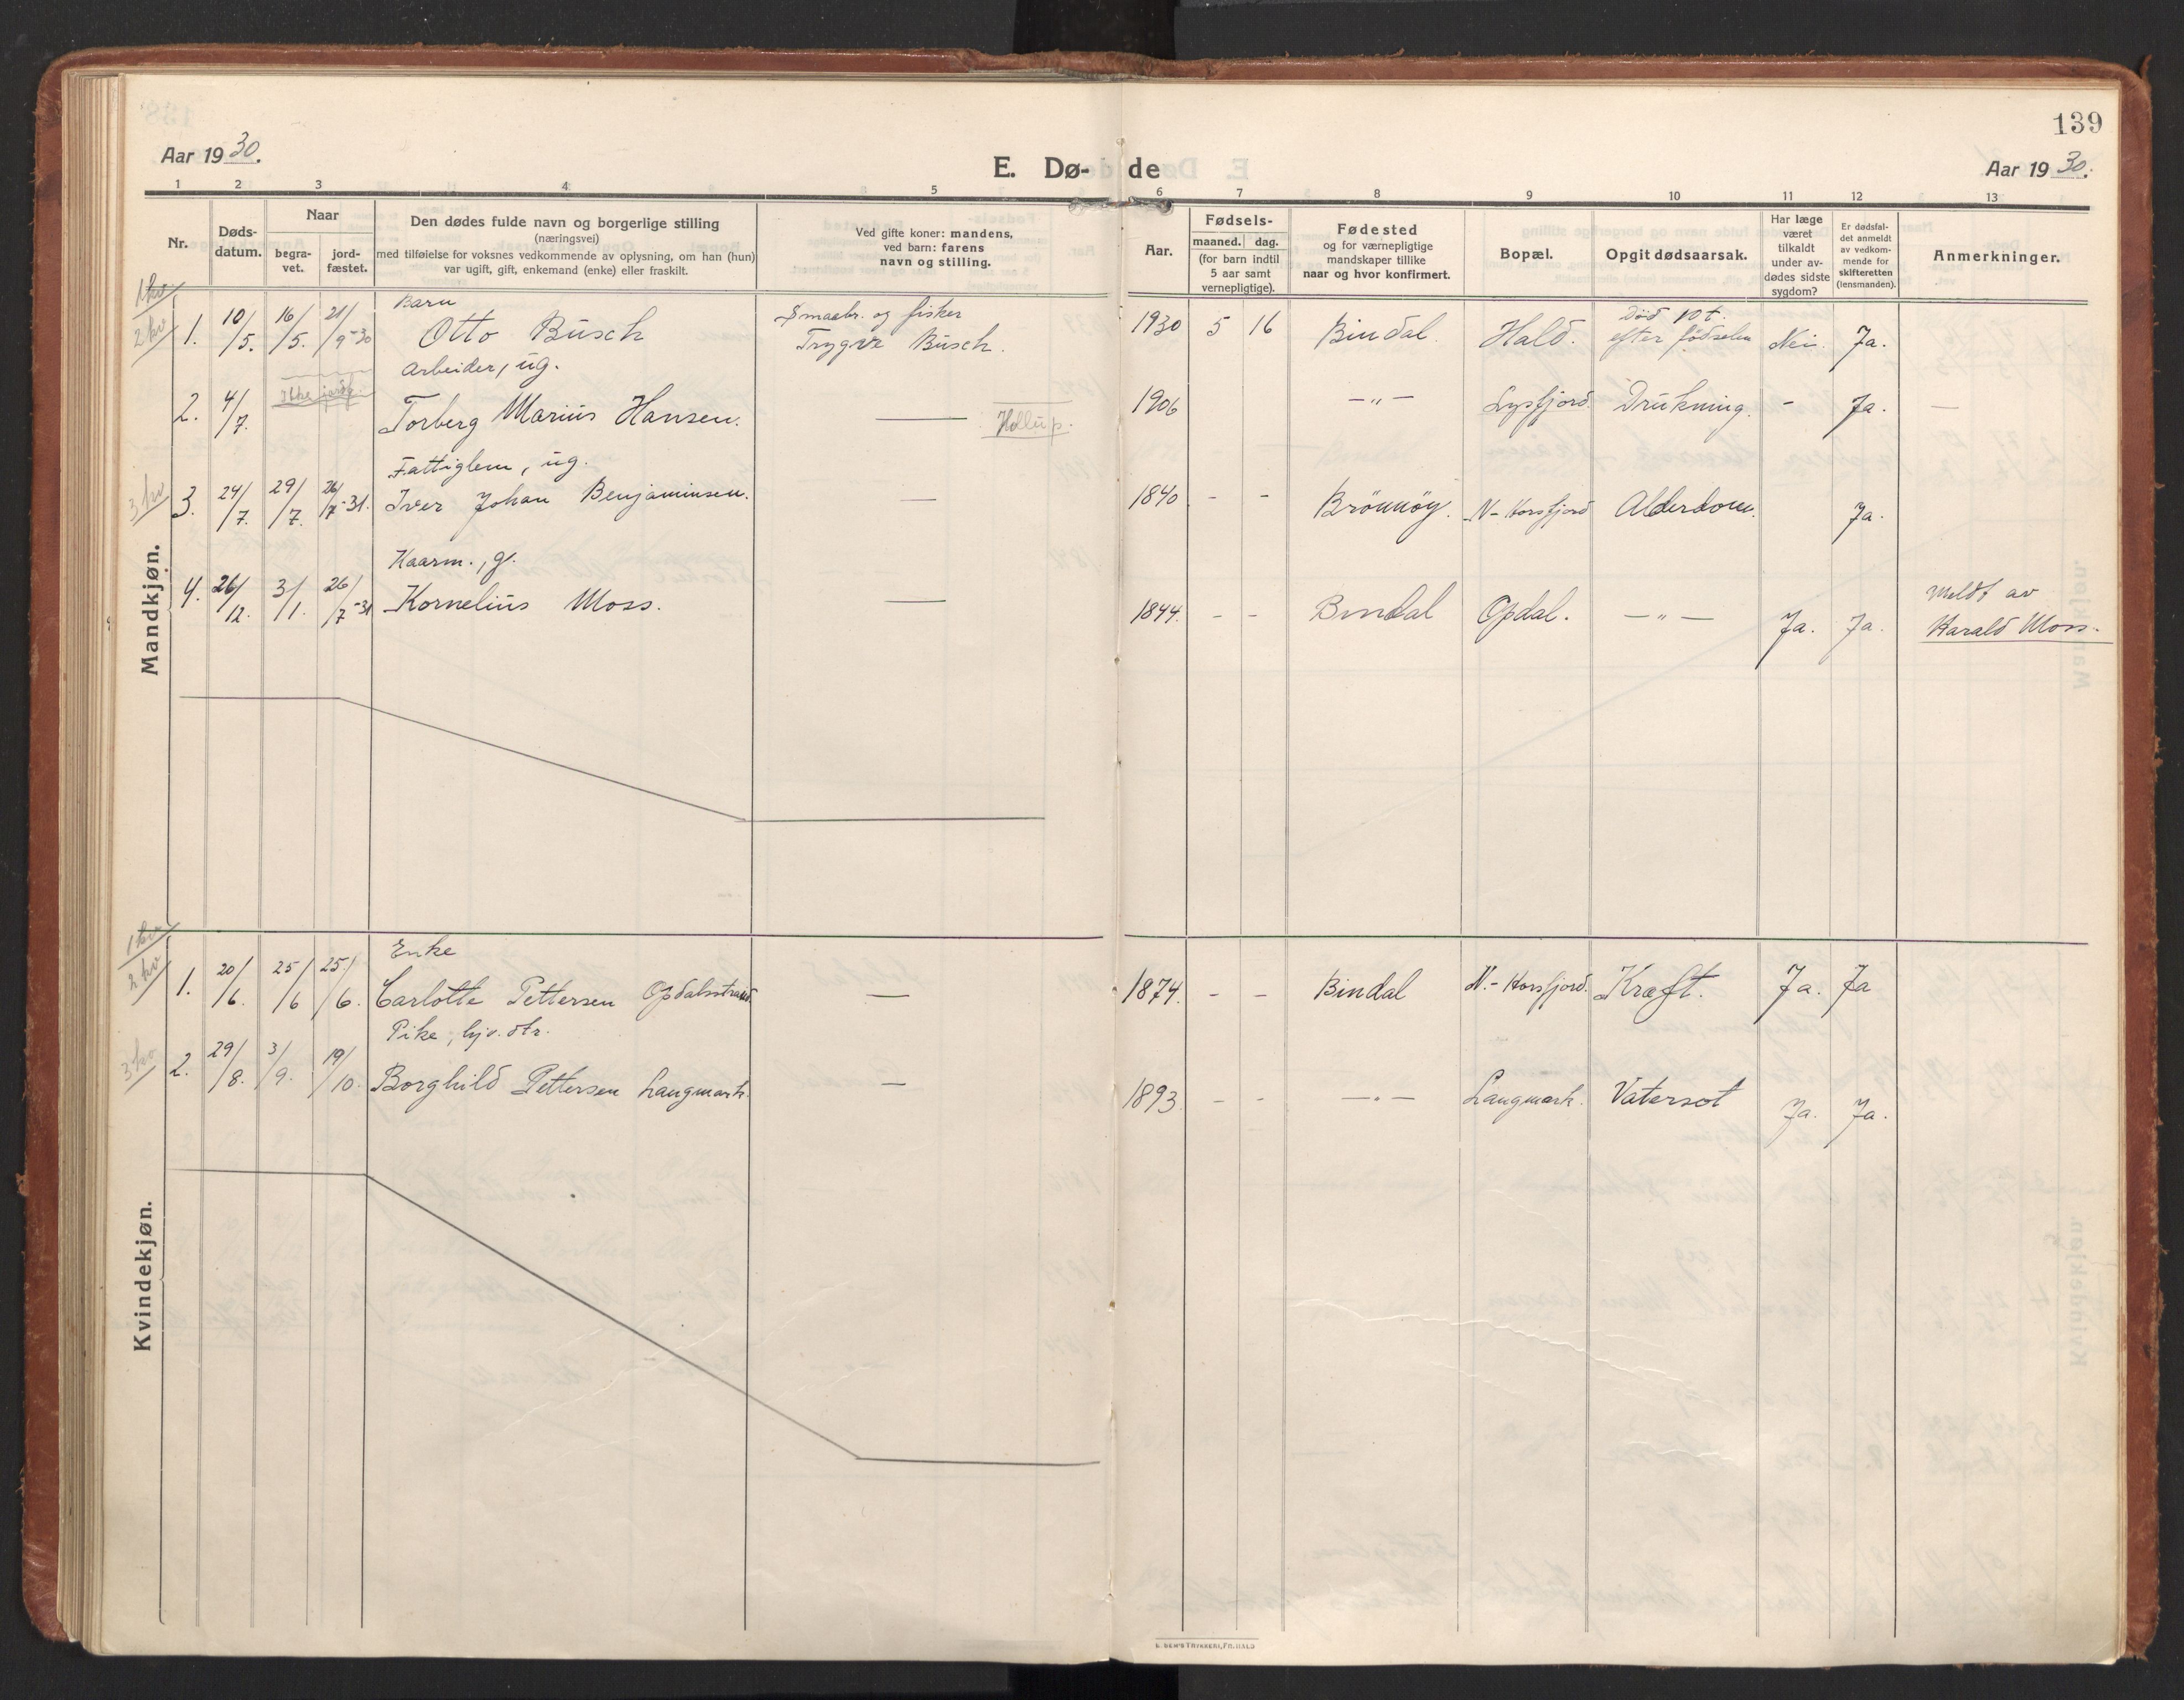 139
Aar 1930.
E. Dø- de
Aar 1930.
1 2 3 4 5 6 7 8 9 10 11 12 13
Nr.
Døds-
datum.
Naar
begra-
vet.
jord-
fæstet.
Den dødes fulde navn og borgerlige stilling
(næringsvei)
med tilføielse for voksnes vedkommende av oplysning, om han (hun)
var ugift, gift, enkemand (enke) eller fraskilt.
Ved gifte koner: mandens,
ved barn: farens
navn og stilling.
Aar.
Fødsels-
maaned. dag.
(for barn indtil
5 aar samt
vernepligtige).
Fødested
og for værnepligtige
mandskaper tillike
naar og hvor konfirmert.
Bopæl.
Opgit dødsaarsak.
Har læge
været
tilkaldt
under av-
dødes sidste
sygdom?
Er dødsfal-
det anmeldt
av vedkom-
mende for
skifteretten
(lensmanden).
Anmerkninger.
Mandkjøn.
1 kv
2 kv
Barn Smaabr. og fisker Död 10 t.
1. 10/5. 16/5. 21/9-30 Otto Busch Trygve Busch. 1930 5 16 Bindal. Hald. efter födselen Nei. Ja.
Arbeider, ug.
2. 4/7. Ikke jordf. Torberg Marius Hansen. — Hollup. 1906 —"— Lysfjord. Drukning. - Ja. —
Fattiglem, ug.
3 kv
3. 24/7. 29/7. 26/7-31. Iver Johan Benjaminsen. — 1840 - - Brönnöy. N-Horsfjord Alderdom. Ja.
Kaarm., g.
4. 26/12. 3/1. 26/7-31 Kornelius Moss. — 1844. - - Bindal Opdal. —"— Ja. Ja. Meldt av
Harald Moss.
Kvindekjøn.
1 kv
2 kv
Enke
1. 20/6. 25/6 25/6. Carlotte Pettersen Opdalsstrand — 1874. - - Bindal N.-Horsfjord. Kræft. Ja. Ja
Pike, hjv. dtr.
3 kv
2. 29/8. 3/9. 19/10. Borghild Pettersen Langmark. — 1893. - - —"— Langmark. Vatersot Ja. Ja.